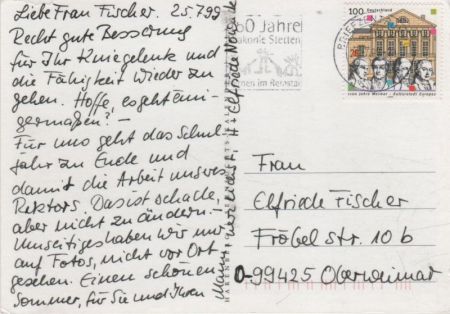 Liebe Frau Fischer. 25.7.99
Recht gute Besserung
für Ihr Kniegelenk und
die Fähigkeit wieder zu
gehen. Hoffe, es geht eini-
germaßen? –
Für uns geht das Schul-
jahr zu Ende und
damit die Arbeit unseres
Rektors. Das ist schade,
aber nicht zu ändern!
Umseitiges haben wir nur
auf Fotos, nicht vor Ort
gesehen. Einen schönen
Sommer, für Sie und Ihren
Mann, H. Elfriede
60 Jahre
Diakonie Stetten
im Remstal
100 Deutschland
1100 Jahre Weimar - Kulturstadt Europas
Frau
Elfriede Fischer
Fröbelstr. 10b
D-99425 Oberweimar